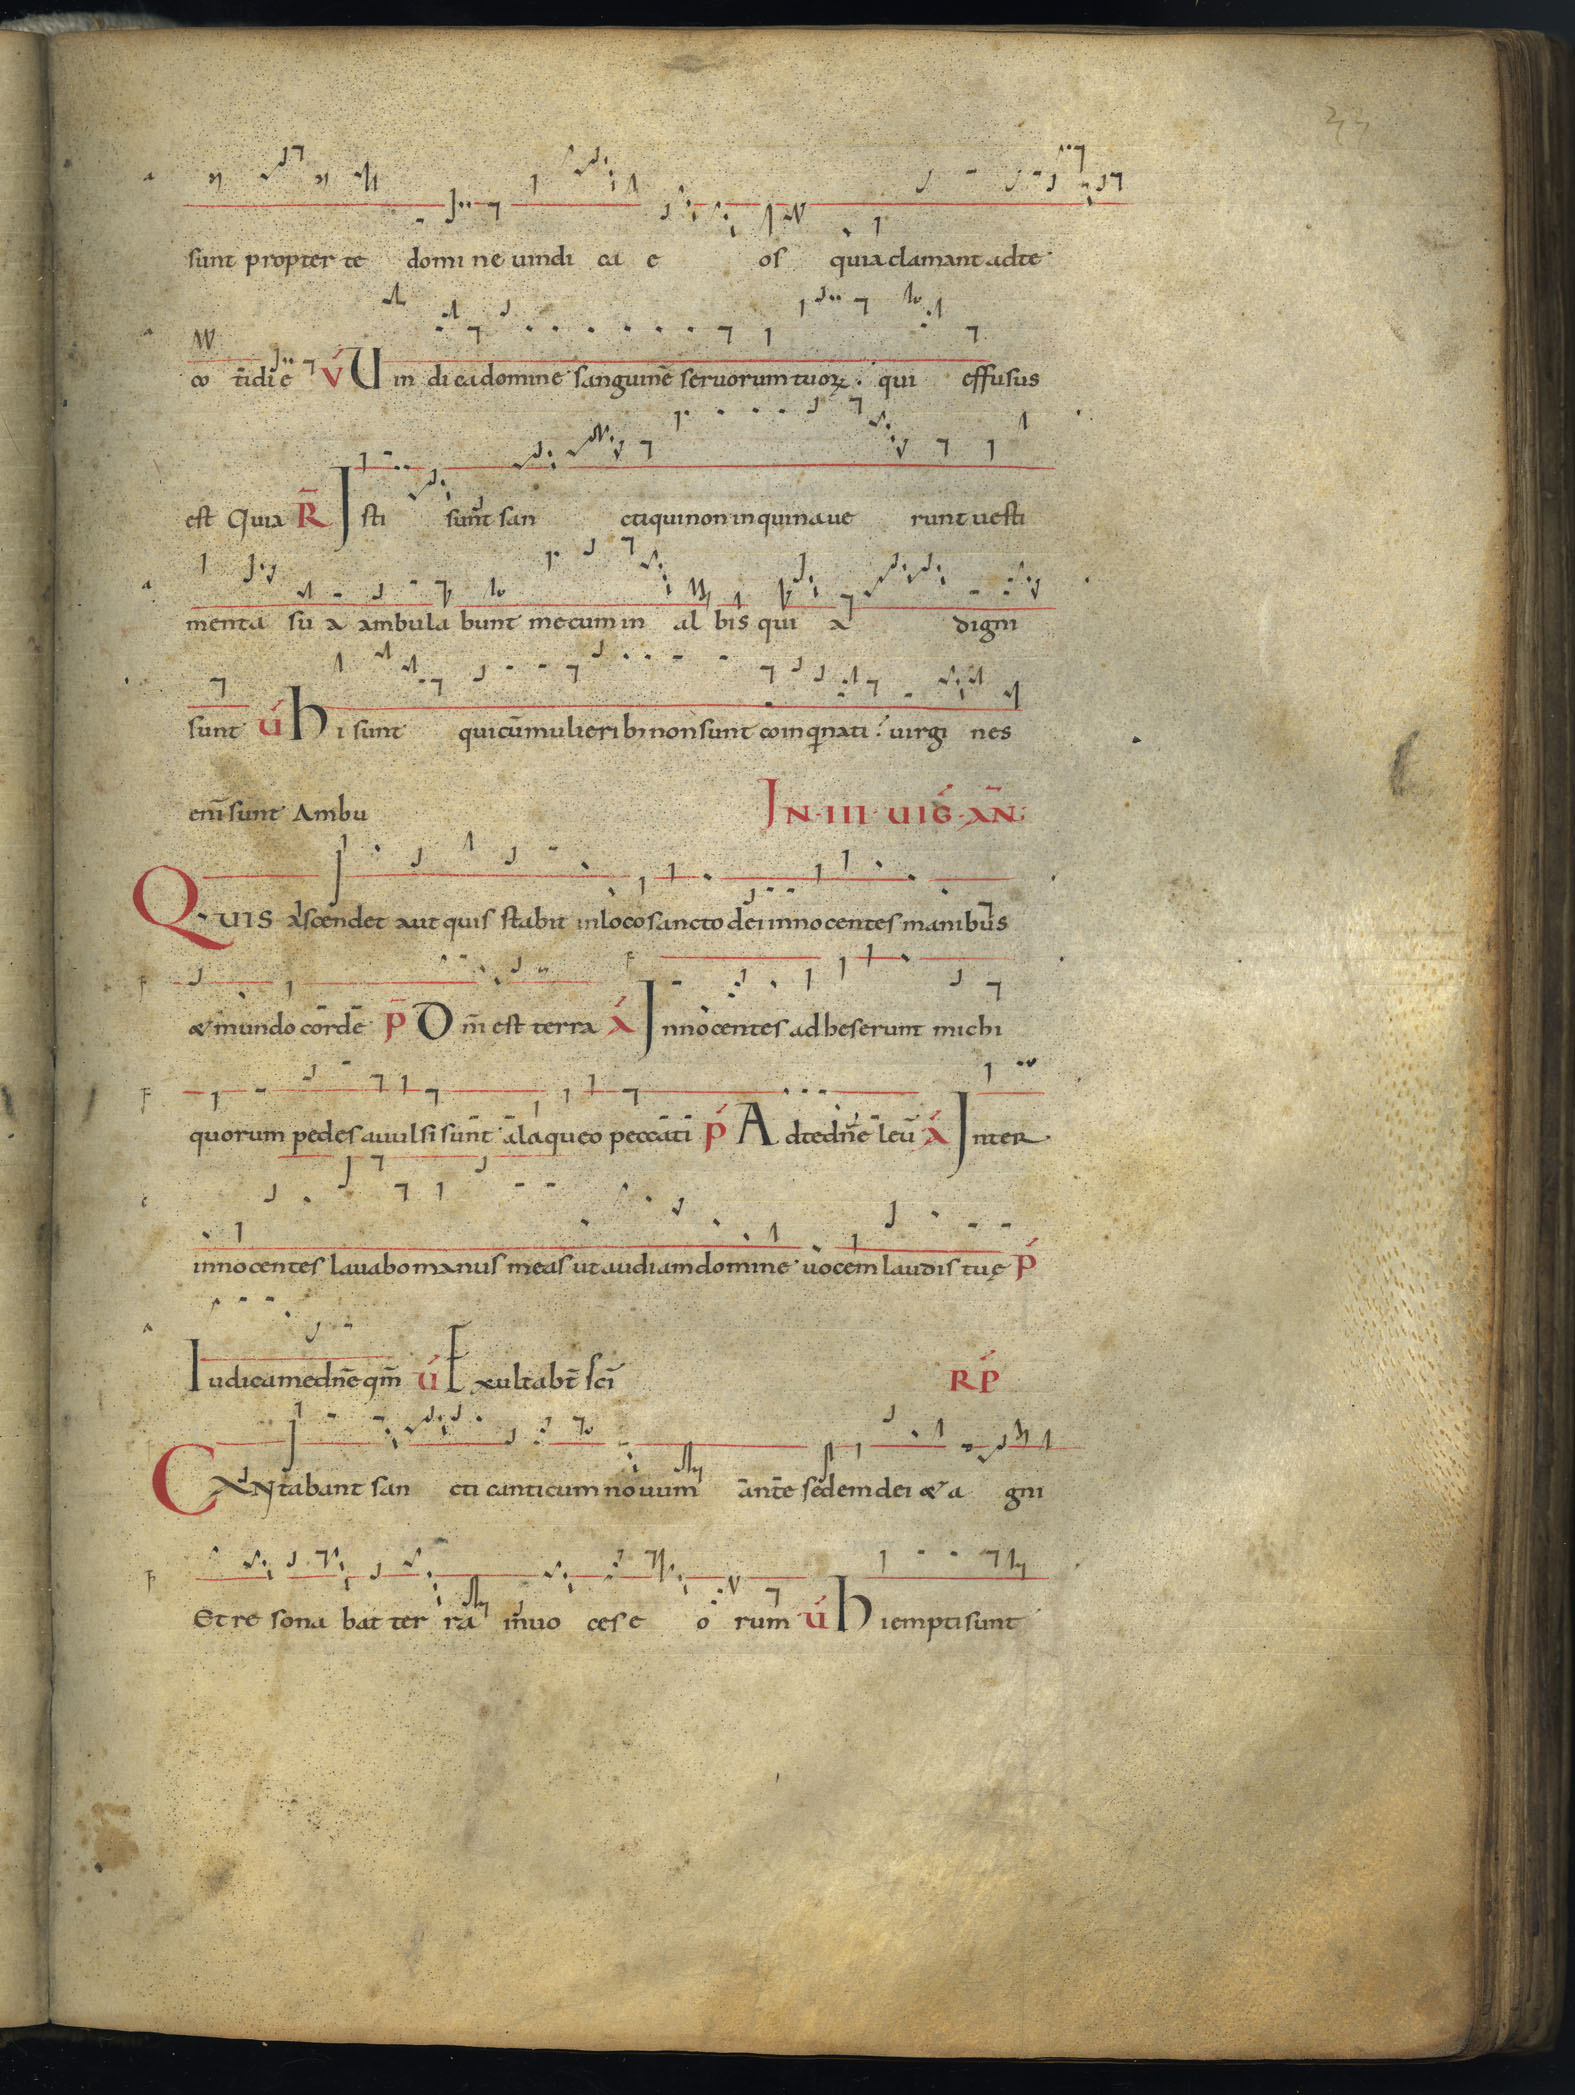 33
sunt propter te domi ne uindi ca e os quia clamant ad te
co tidie V̓ Uin di ca domine sanguinē seruorum tuoꝝ. qui effusus
est Quia R̄ Isti sunt san cti qui non inquinaue runt uesti
menta su a ambula bunt mecum in al bis qui a digni
sunt ú hi sunt qui cū mulierib; non sunt coinqnati? uirgi nes
eni᷑ sunt Ambu IN · III · UIG · AN̄:
QUIS ascendet aut quis stabit in loco sancto dei innocentes manibus
& mundo corde p̄ Dn̄i est terra Á Innocentes adheserunt michi
quorum pedes auulsi sunt a laqueo peccati ṕ Ad te dn̄e leū Á Inter
innocentes lauabo manus meas ut audiam domine uocem laudis tuę ṕ
Iudica me dn̄e qm̄ ú Exultabt̄ sc̄i RṔ
CANtabant san cti canticum nouum ante sedem dei & a gni
Et re sona bat ter ra in uo ces e o rum ú hi empti sunt